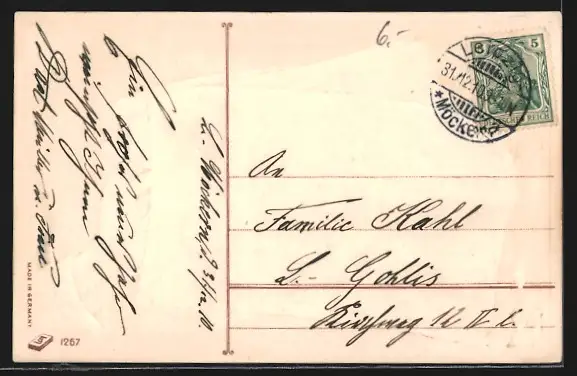 L. Möckern, d. 31/12.10
Ein frohes neues Jahr
wünscht Ihnen
6.-
5
REICH
L
31.12.10
*Möckern
An
Familie Kahl
L.- Gohlis
Kirschweg 12 II l.
MADE IN GERMANY
1267